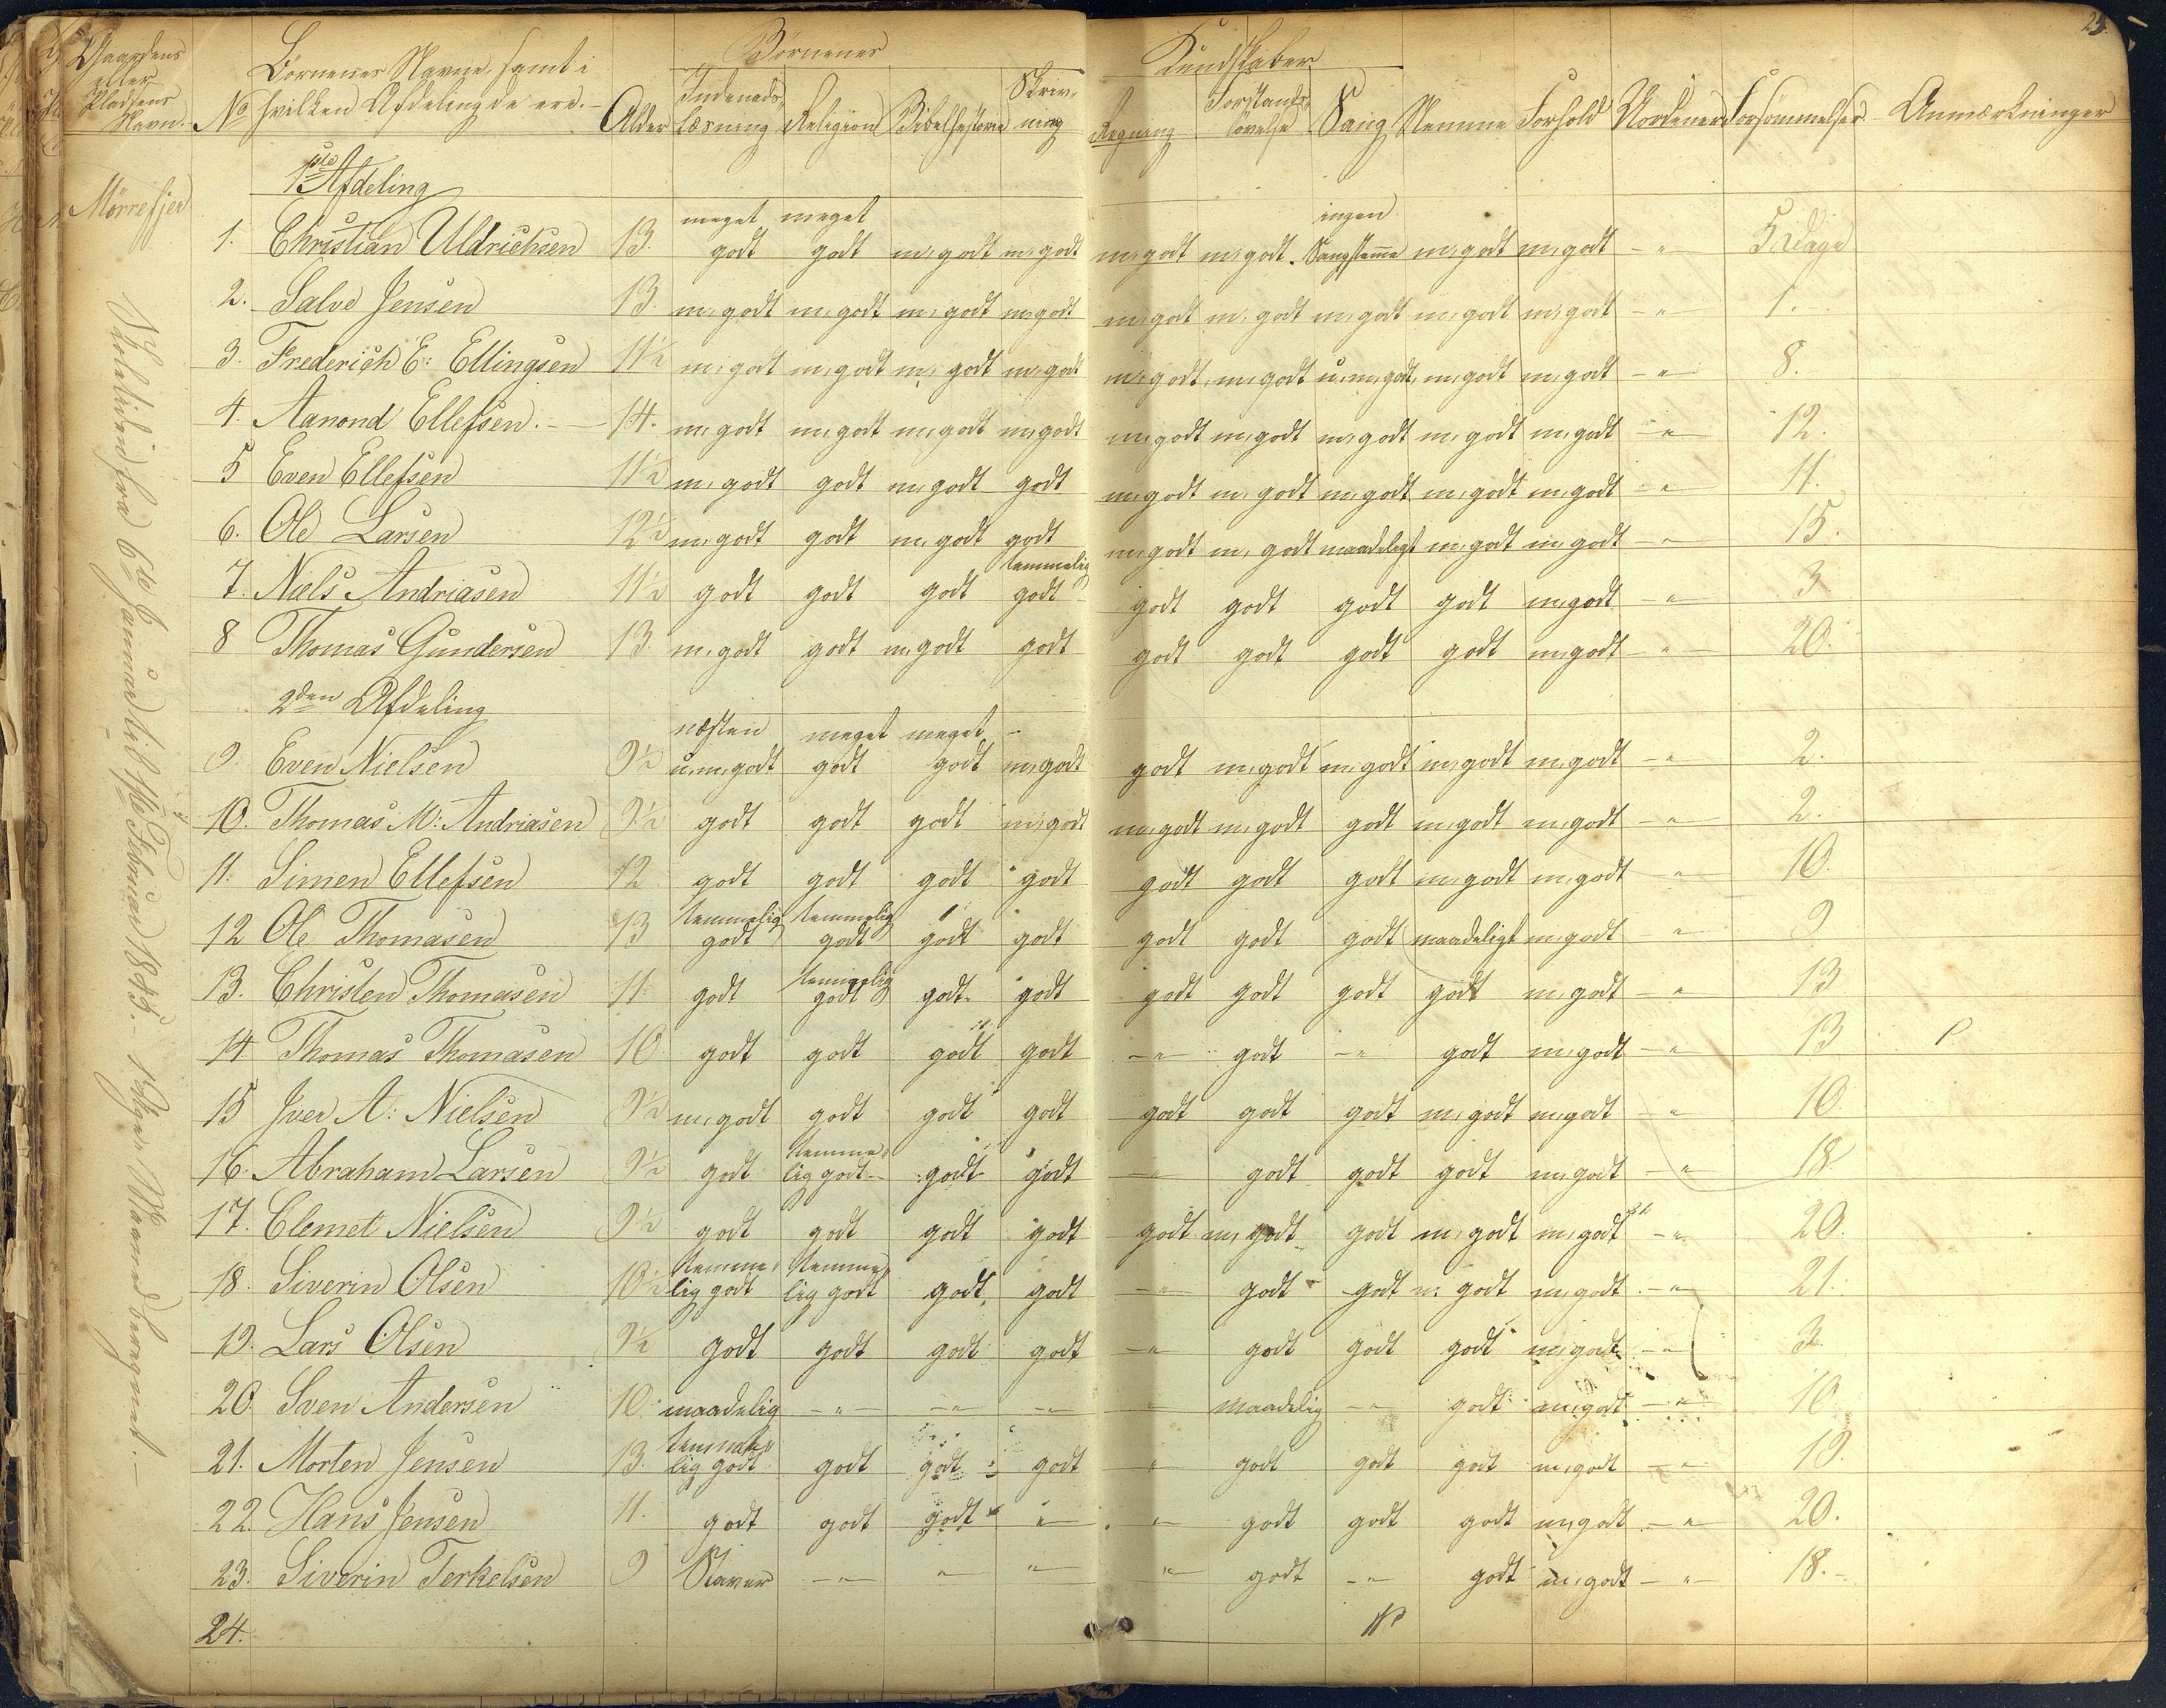 25.
Gaardens eller Pladsens Navn.
No
Börnenes Navne, samt i hvilken Afdeling de ere.-
Alder
Börnenes Kundskaber
Indenads-læsning Religion Bibelhistorie Skriv-ning Regning Forstands-övelse Sang Nemme Forhold Uordener Forsömmelser Anmærkninger
Mörrefjer
1ste Afdeling
1. Christian Uldrichsen 13. meget godt meget godt m, godt m, godt m, godt m, godt. ingen Sangstem̅e m, godt m, godt - " 5 Dage
2. Salve Jensen 13. m, godt m, godt m, godt m, godt m, godt m, godt m, godt m, godt m, godt - " - 1.
3. Frederich E: Ellingsen 11½ m, godt m, godt m, godt m, godt m, godt, m, godt u, m, godt, m, godt m, godt - " - 8.
4. Aanond Ellefsen. - 14. m, godt m, godt m, godt m, godt m, godt m, godt m, godt m, godt m, godt - " - 12.
5 Even Ellefsen 11½ m, godt godt m, godt godt m, godt m, godt m, godt m, godt m, godt - " - 11.
6. Ole Larsen 12½ m, godt godt m, godt godt m, godt m, godt maadeligt m, godt m, godt - " - 15.
7. Niels Andriasen 11½ godt godt godt temmelig godt godt godt godt godt m, godt - " - 3
8 Thomas Gundersen 13. m, godt godt m, godt godt godt godt godt godt m, godt - " - 20.
2den Afdeling
9. Even Nielsen 9½ næsten u, m, godt meget godt meget godt m, godt godt m, godt m, godt m, godt m, godt - " - 2.
10. Thomas M: Andriasen 9½ godt godt godt m, godt m, godt m, godt godt m, godt m, godt - " - 2.
11. Simen Ellefsen 12 godt godt godt godt godt godt godt m, godt m, godt - " - 10.
12 Ole Thomasen 13 temmelig godt temmelig godt godt godt godt godt godt maadeligt m, godt - " - 9
13. Christen Thomasen 11 godt temmelig godt godt. godt godt godt godt godt m, godt - " - 13
14. Thomas Thomasen 10 godt godt godt godt - " - godt - " godt m, godt - " - 13
15 Iver A: Nielsen 9½ m, godt godt godt godt godt godt godt m, godt m, godt - " - 10
16. Abraham Larsen 9½ godt temme-lig godt - godt godt - " - godt godt godt m, godt - " - 18
17. Clemet Nielsen 9½ godt godt godt godt godt m, godt godt m, godt m, godt - " 20.
18. Siverin Olsen 10½ temme-lig godt temme-lig godt godt, godt - " - godt godt m: godt m, godt - " 21.
19. Lars Olsen 9½ godt godt godt godt - " - godt godt godt m, godt - " 3.
20. Sven Andersen 10. maadelig - " - - " - - " - " maadelig - " godt m, godt - " - 10
21. Morten Jensen 13. temme-lig godt godt godt godt " godt godt godt m, godt - " - 19.
22. Hans Jensen 11. godt godt godt " - " - godt godt godt m, godt - " - 20.
23. Siverin Terkelsen 9 Staver - " - " " " godt - " godt m, godt - " - 18. -
24.